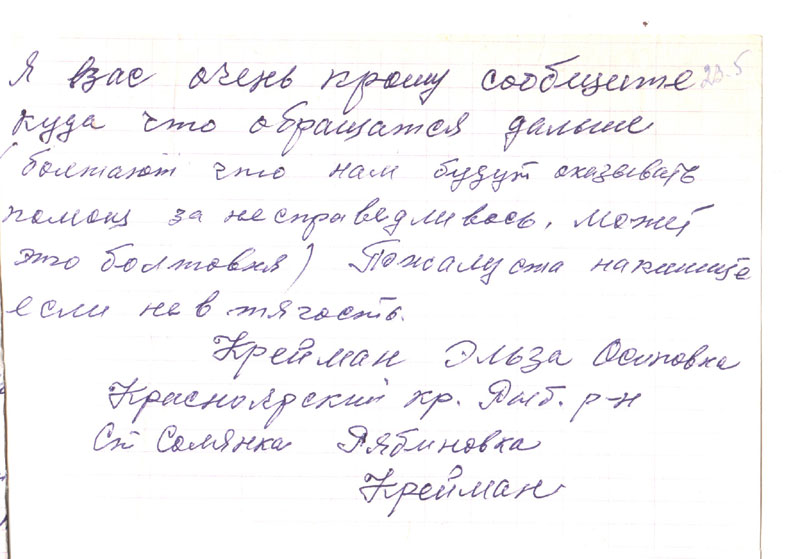 Я вас очень прошу сообщите 23.5
куда что обращатся дальше
(болтают что нам будут оказывать
помощ за несправедливось. Может
это болтовня) Пожалуста напишите
если не в тягость.
Крейман Эльза Осиповна
Красноярский кр. Рыб. р-н
Ст Солянка Рябиновка
Крейман